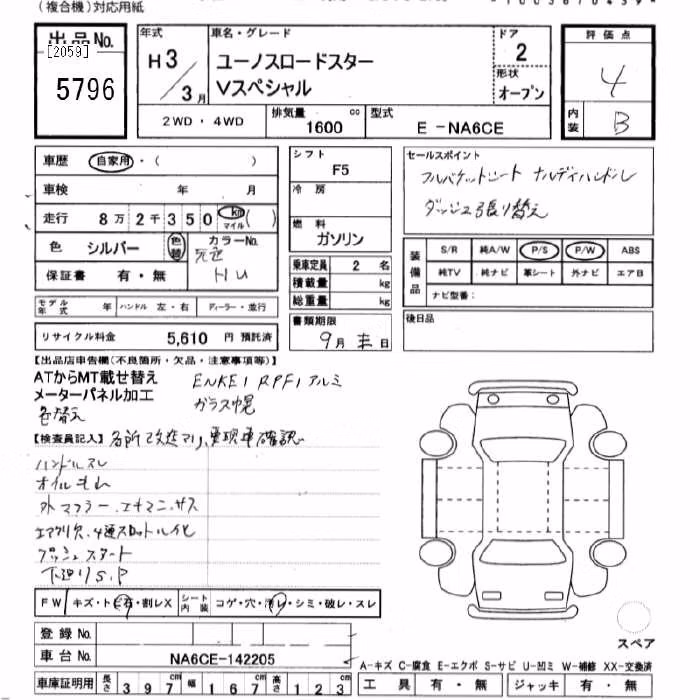 (複合機)対応用紙
出品No.
[2059]
5796
年式
H3/3月
車名・グレード
ユーノスロードスター
Vスペシャル
ドア
2
形状
オープン
評価点
4
内装
B
2WD・4WD
排気量 1600 cc
型式 E -NA6CE
車歴 自家用・( )
車検 年 月
走行 8万2千350 km マイル ( )
色 シルバー 色替 カラーNo.
HU
保証書 有・無
モデル年式 年 ハンドル 左・右 ディーラー・並行
リサイクル料金 5,610 円 預託済
シフト
F5
冷房
燃料
ガソリン
乗車定員 2 名
積載量 kg
総重量 kg
書類期限
9月末日
セールスポイント
フルバケットシート ナルディハンドル
ダッシュ張り替え
装備品
S/R 純A/W P/S P/W ABS
純TV 純ナビ 革シート 外ナビ エアB
ナビ型番:
後日品
【出品店申告欄(不良箇所・欠品・注意事項等)】
ATからMT載せ替え ENKEI RPF1アルミ
メーターパネル加工 ガラス幌
色替え
【検査員記入】各所改造アリ、要現車確認
ハンドルスレ
オイルモレ
外マフラー、エキマニ、サス
エアクリ欠、4連スロットル化
プッシュスタート
下廻りS,P
FW キズ・トビ石・割レX シート内装 コゲ・穴・汚レ・シミ・破レ・スレ
登録No.
車台No. NA6CE-142205
車庫証明用 長さ 397cm 幅 167cm 高さ 123cm
スペア
A-キズ C-腐食 E-エクボ S-サビ U-凹ミ W-補修 XX-交換済
工具 有・無 ジャッキ 有・無